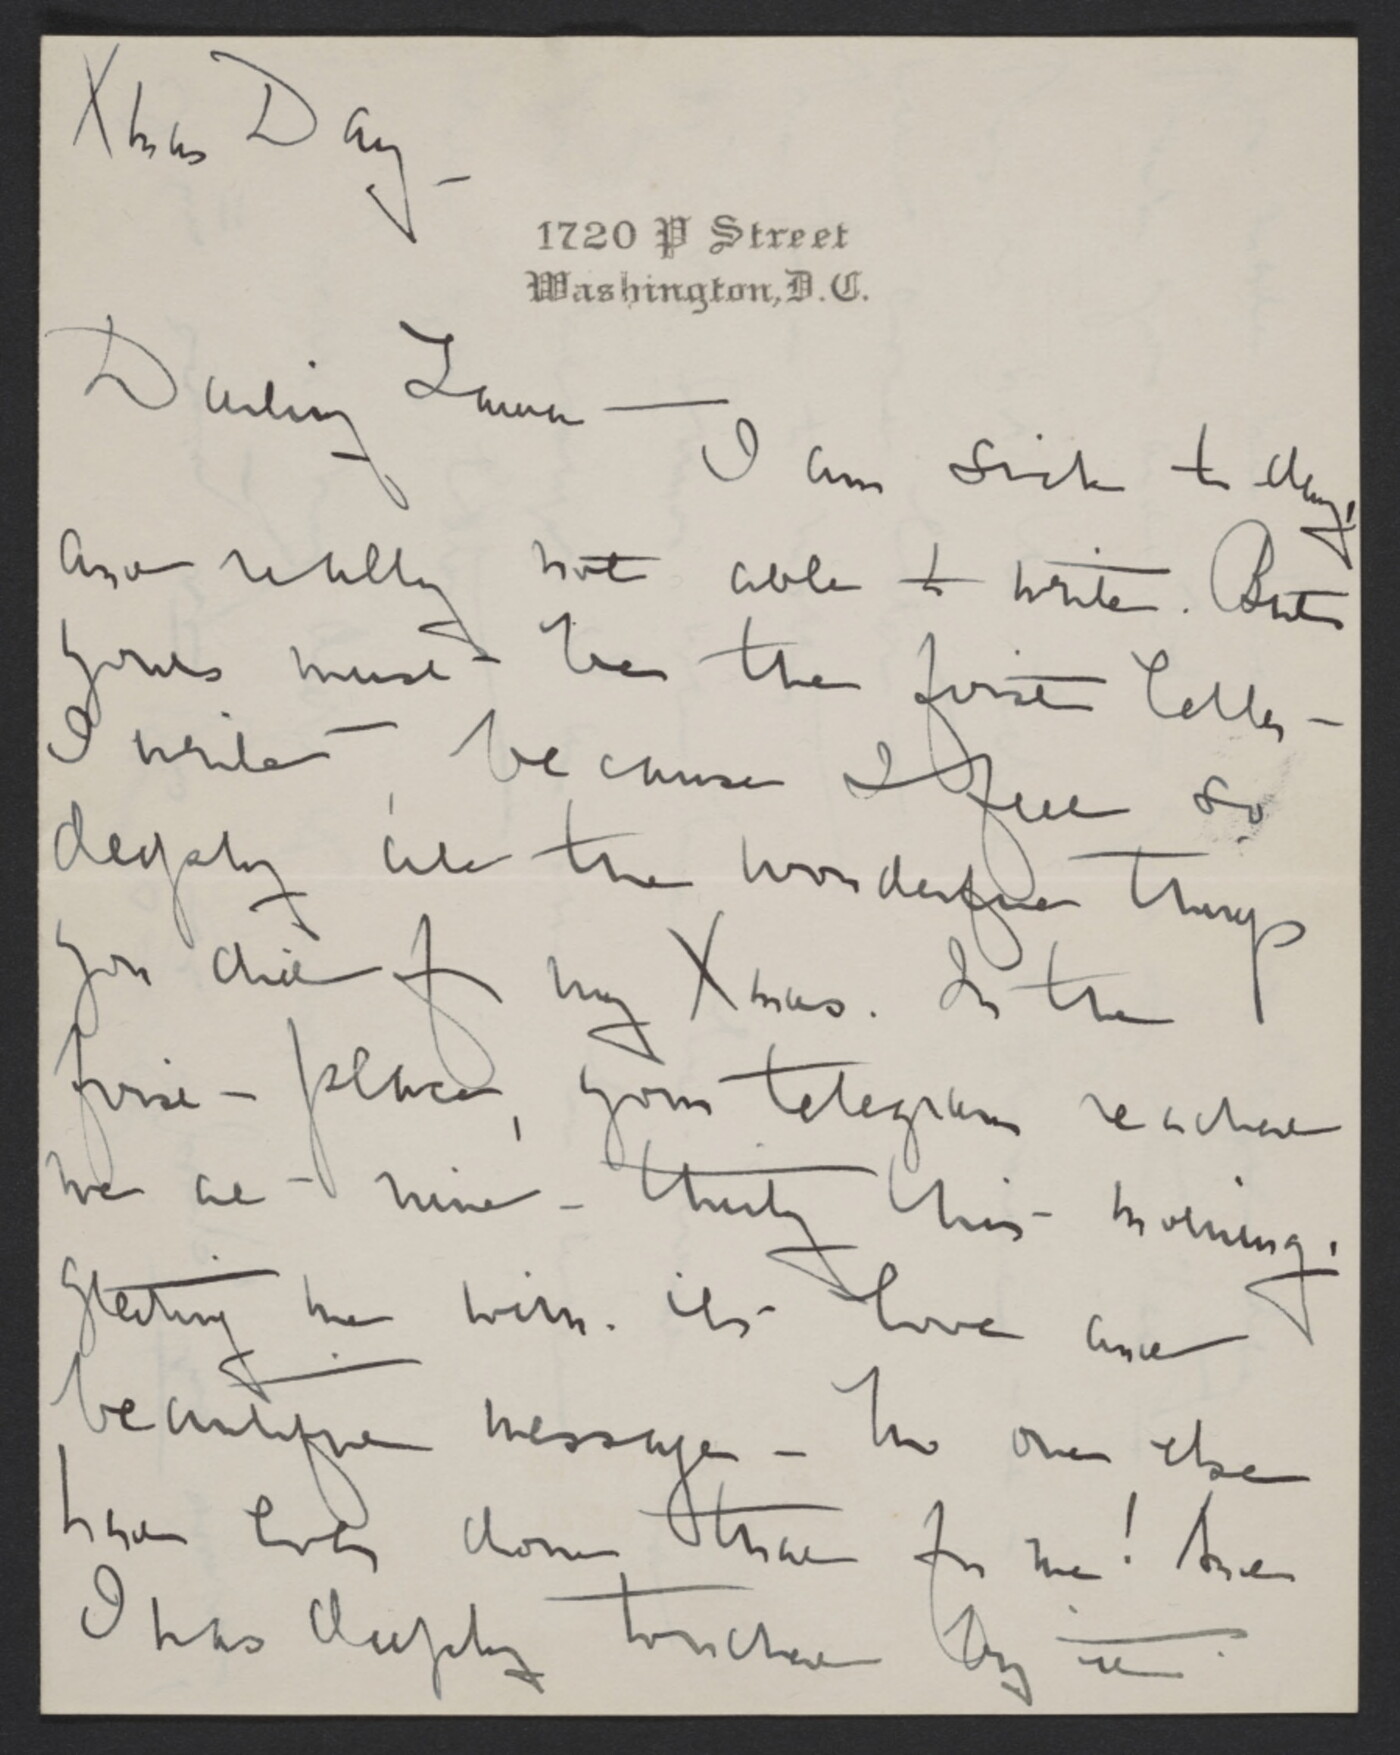 Xmas Day -
1720 P Street
Washington, D.C.
Darling Laura — I am sick to day,
and really not able to write. But
yours must be the first letter -
I write, because I feel so
deeply all the wonderful things
you did for my Xmas. In the
first place, your telegram reached
me at nine-thirty this morning,
greeting me with its love and
beautiful message - No one else
has ever done that for me! And
I was deeply touched by it.